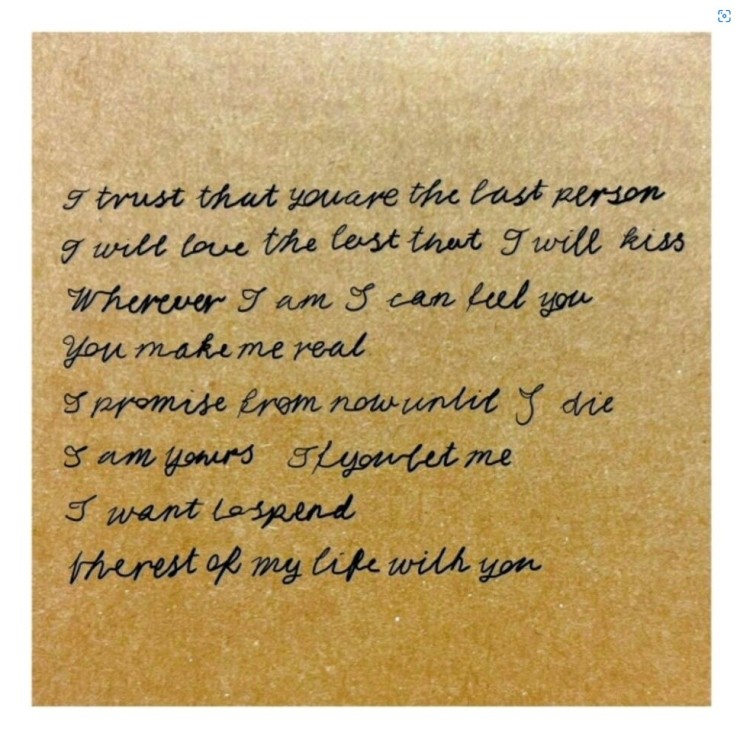 I trust that you are the last person
I will love the last that I will kiss
Wherever I am I can feel you
You make me real
I promise from now until I die
I am yours If you let me
I want to spend
the rest of my life with you